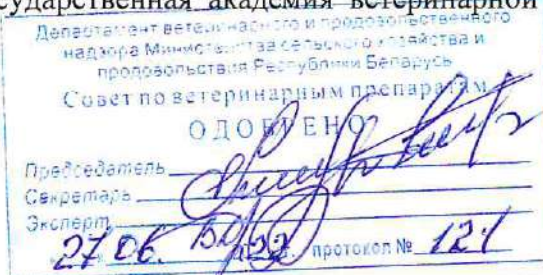 сударственная академия ветеринарной
Департамент ветеринарного и продовольственного
надзора Министерства сельского хозяйства и
продовольствия Республики Беларусь
Совет по ветеринарным препаратам
ОДОБРЕНО
Председатель
Секретарь
Эксперт
27 06. 22 протокол № 121